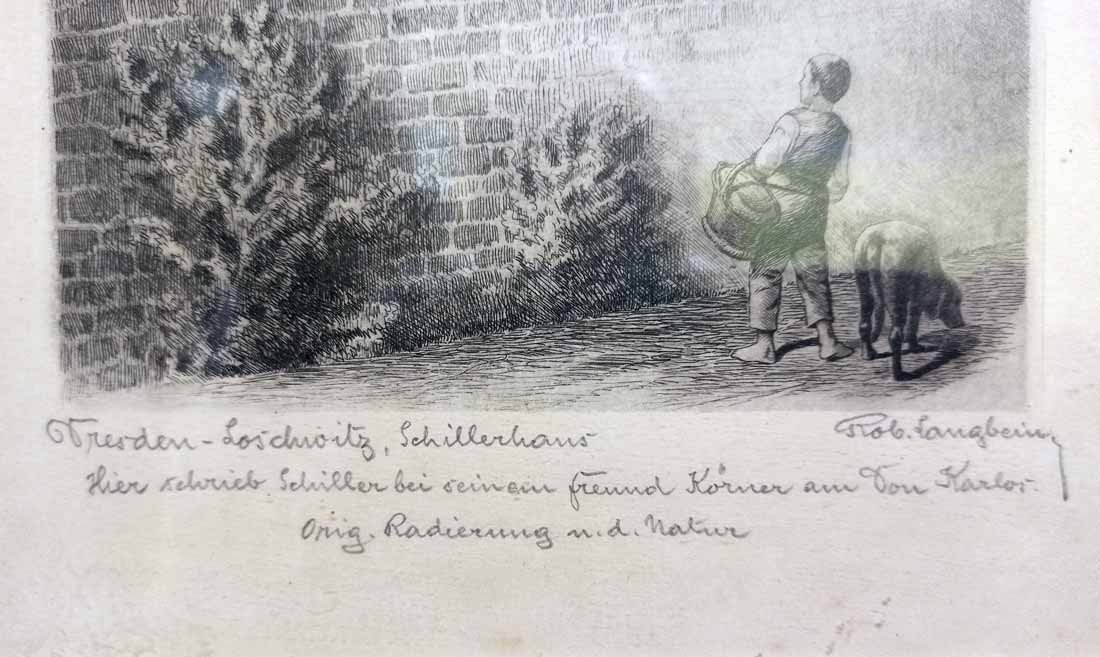 Dresden-Loschwitz, Schillerhaus
Rob. Langbein
Hier schrieb Schiller bei seinem freund Körner am Don Karlos
Orig. Radierung n. d. Natur